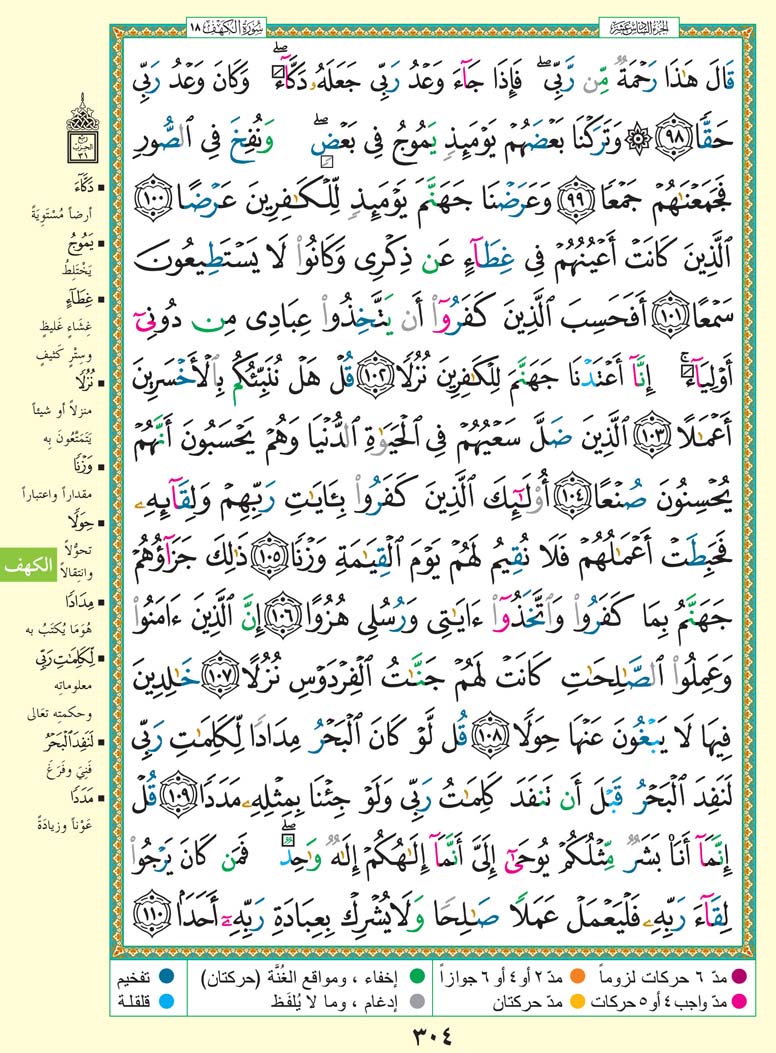 الجزء السادس عشر
سورة الكهف ١٨
قَالَ هَٰذَا رَحْمَةٌ مِّن رَّبِّي ۖ فَإِذَا جَآءَ وَعْدُ رَبِّي جَعَلَهُۥ دَكَّآءَ ۖ وَكَانَ وَعْدُ رَبِّي
حَقًّا ٩٨ ۞ وَتَرَكْنَا بَعْضَهُمْ يَوْمَئِذٍ يَمُوجُ فِي بَعْضٍ ۖ وَنُفِخَ فِي الصُّورِ
فَجَمَعْنَٰهُمْ جَمْعًا ٩٩ وَعَرَضْنَا جَهَنَّمَ يَوْمَئِذٍ لِّلْكَٰفِرِينَ عَرْضًا ١٠٠
الَّذِينَ كَانَتْ أَعْيُنُهُمْ فِي غِطَآءٍ عَن ذِكْرِي وَكَانُوا۟ لَا يَسْتَطِيعُونَ
سَمْعًا ١٠١ أَفَحَسِبَ الَّذِينَ كَفَرُوٓا۟ أَن يَتَّخِذُوا۟ عِبَادِي مِن دُونِيٓ
أَوْلِيَآءَ ۚ إِنَّآ أَعْتَدْنَا جَهَنَّمَ لِلْكَٰفِرِينَ نُزُلًا ١٠٢ قُلْ هَلْ نُنَبِّئُكُم بِالْأَخْسَرِينَ
أَعْمَٰلًا ١٠٣ الَّذِينَ ضَلَّ سَعْيُهُمْ فِي الْحَيَوٰةِ الدُّنْيَا وَهُمْ يَحْسَبُونَ أَنَّهُمْ
يُحْسِنُونَ صُنْعًا ١٠٤ أُو۟لَٰٓئِكَ الَّذِينَ كَفَرُوا۟ بِـَٔايَٰتِ رَبِّهِمْ وَلِقَآئِهِۦ
فَحَبِطَتْ أَعْمَٰلُهُمْ فَلَا نُقِيمُ لَهُمْ يَوْمَ الْقِيَٰمَةِ وَزْنًا ١٠٥ ذَٰلِكَ جَزَآؤُهُمْ
جَهَنَّمُ بِمَا كَفَرُوا۟ وَاتَّخَذُوٓا۟ ءَايَٰتِي وَرُسُلِي هُزُوًا ١٠٦ إِنَّ الَّذِينَ ءَامَنُوا۟
وَعَمِلُوا۟ الصَّٰلِحَٰتِ كَانَتْ لَهُمْ جَنَّٰتُ الْفِرْدَوْسِ نُزُلًا ١٠٧ خَٰلِدِينَ
فِيهَا لَا يَبْغُونَ عَنْهَا حِوَلًا ١٠٨ قُل لَّوْ كَانَ الْبَحْرُ مِدَادًا لِّكَلِمَٰتِ رَبِّي
لَنَفِدَ الْبَحْرُ قَبْلَ أَن تَنفَدَ كَلِمَٰتُ رَبِّي وَلَوْ جِئْنَا بِمِثْلِهِۦ مَدَدًا ١٠٩ قُلْ
إِنَّمَآ أَنَا۠ بَشَرٌ مِّثْلُكُمْ يُوحَىٰٓ إِلَيَّ أَنَّمَآ إِلَٰهُكُمْ إِلَٰهٌ وَٰحِدٌ ۖ فَمَن كَانَ يَرْجُوا۟
لِقَآءَ رَبِّهِۦ فَلْيَعْمَلْ عَمَلًا صَٰلِحًا وَلَا يُشْرِكْ بِعِبَادَةِ رَبِّهِۦٓ أَحَدًۢا ١١٠
ربع
الحزب
٣١
دَكَّآءَ
أرضاً مُسْتَوِيَةً
يَمُوجُ
يَخْتَلِطُ
غِطَآءٍ
غِشَاءٍ غَليظٍ
وسِتْرٍ كَثيفٍ
نُزُلًا
منزلاً أو شيئاً
يَتَمَتَّعُونَ بِه
وَزْنًا
مقداراً واعتباراً
حِوَلًا
تحوُّلاً
وانتِقالاً
مِدَادًا
هُوَ مَا يُكتَبُ به
لِّكَلِمَٰتِ رَبِّي
معلوماتِه
وحكمتِه تعَالى
لَنَفِدَ الْبَحْرُ
فَنِيَ وفَرَغَ
مَدَدًا
عَوْناً وزِيادَةً
الكهف
مدّ ٦ حركات لزوماً
مدّ ٢ أو ٤ أو ٦ جوازاً
إخفاء ، ومواقع الغُنَّة (حركتان)
تفخيم
مدّ واجب ٤ أو ٥ حركات
مدّ حركتان
إدغام ، وما لا يُلفَظ
قلقلة
٣٠٤